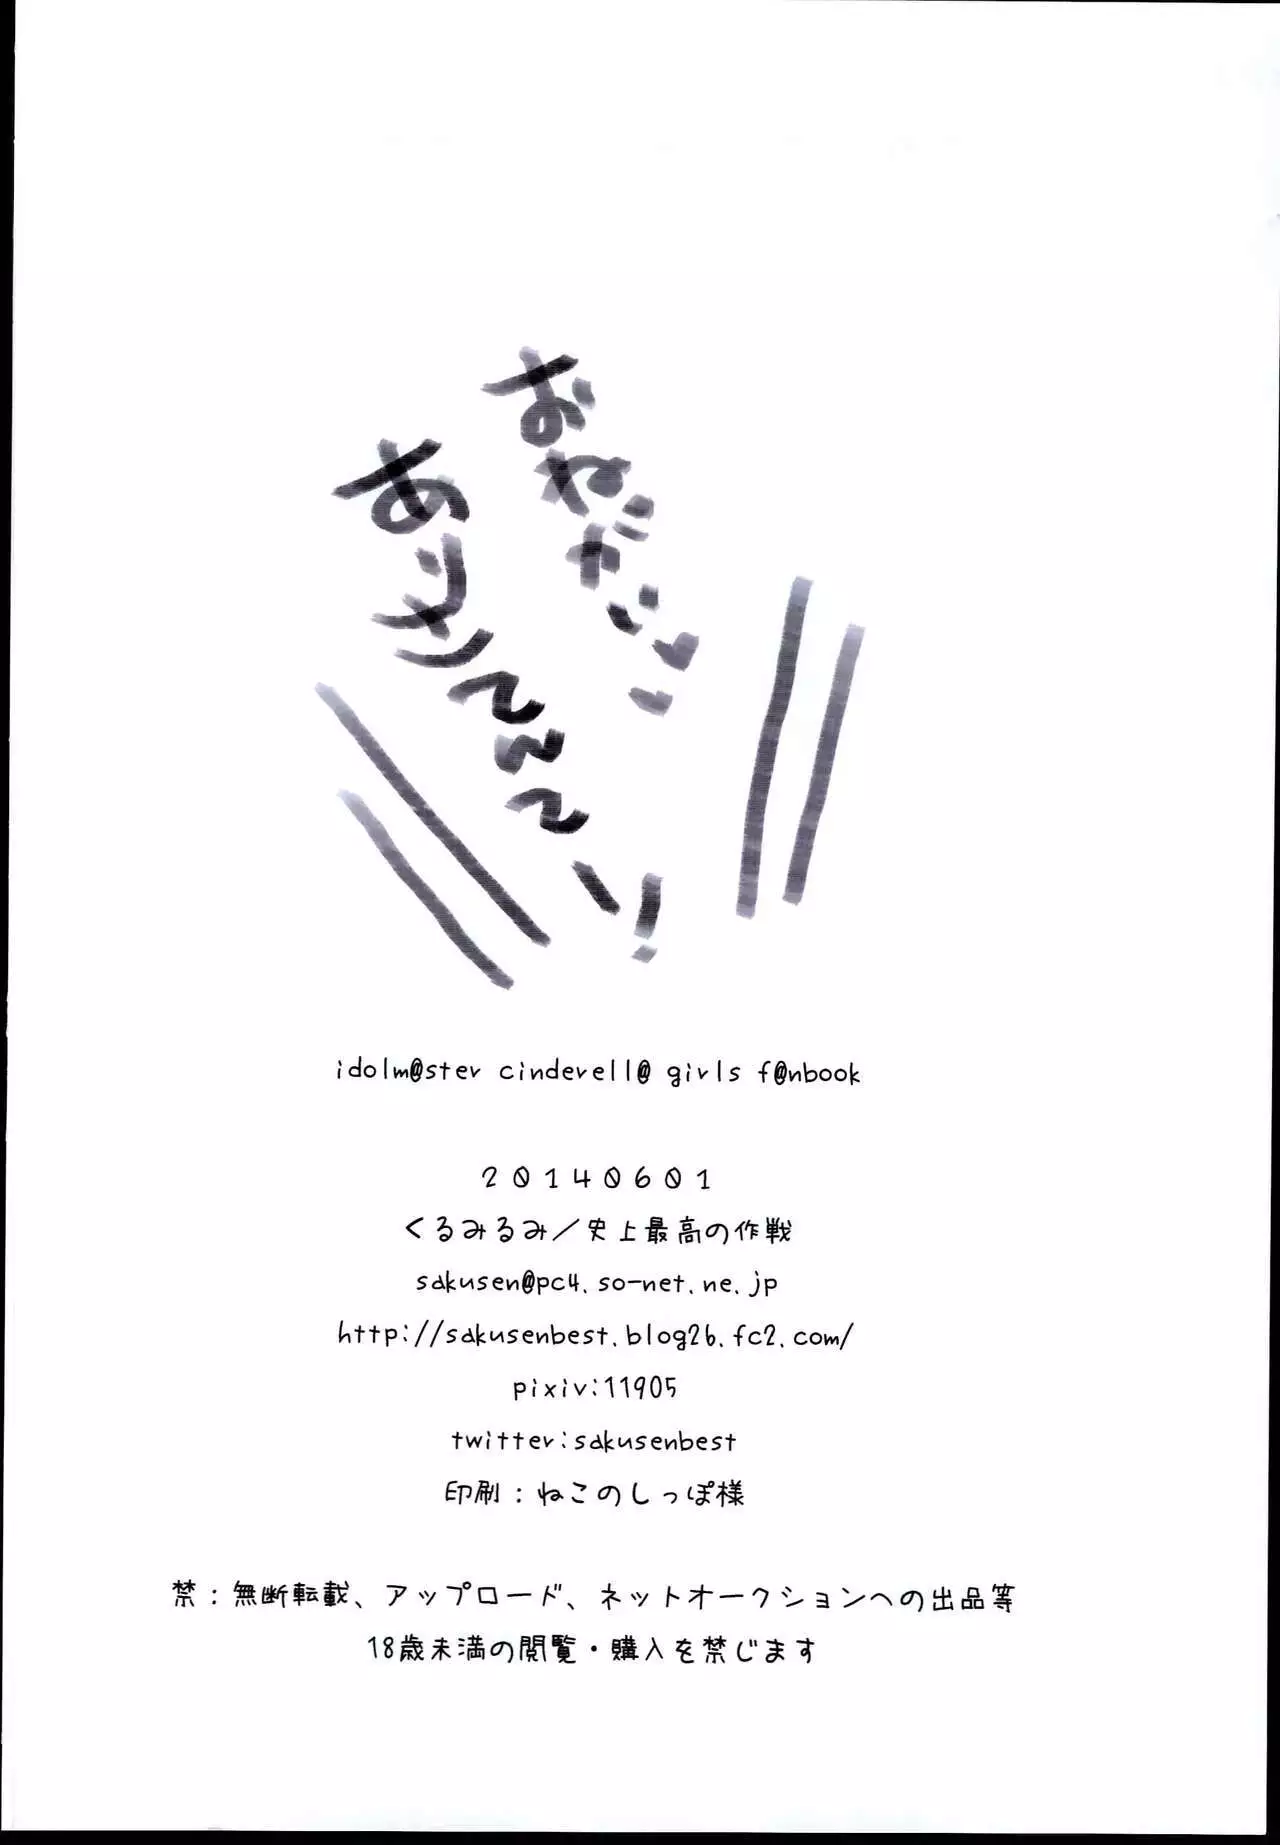 おねだり♥♥
ありすてんてー!
idolm@ster cinderell@ girls f@nbook
20140601
くるみるみ/史上最高の作戦
sakusen@pc4.so-net.ne.jp
http://sakusenbest.blog26.fc2.com/
pixiv:11905
twitter:sakusenbest
印刷:ねこのしっぽ様
禁:無断転載、アップロード、ネットオークションへの出品等
18歳未満の閲覧・購入を禁じます